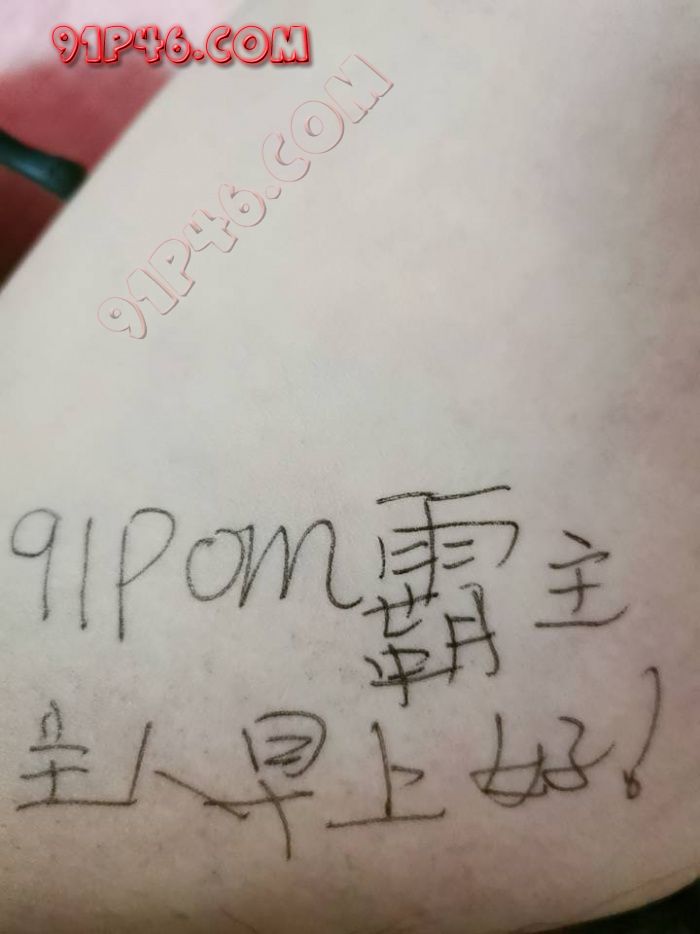 91P46.COM
91P46.COM
91Pom霸主
主人早上好!